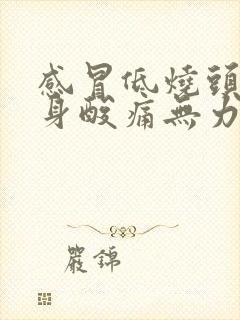 感冒低燒頭
身酸痛無力
嚴錦